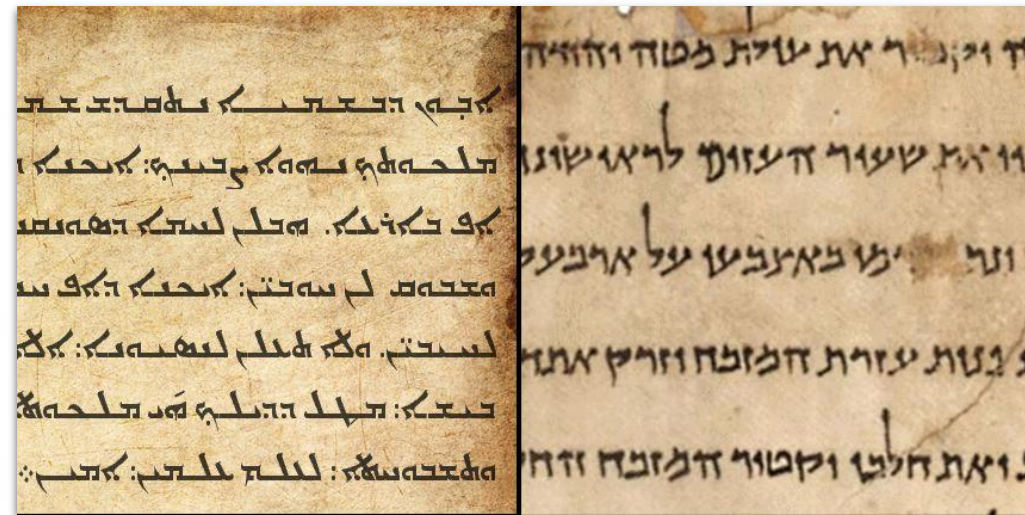 ܐܒܘܢ ܕܒܫܡܝܐ ܢܬܩܕܫ
ܡܠܟܘܬܟ ܢܗܘܐ ܨܒܝܢܟ: ܐܝܟܢܐ
ܐܦ ܒܐܪ̈ܥܐ. ܗܒܠܢ ܠܚܡܐ ܕܣܘܢܩܢ
ܘܫܒܘܩ ܠܢ ܚܘܒܝ̈ܢ: ܐܝܟܢܐ ܕܐܦ
ܠܚܝܒܝ̈ܢ. ܘܠܐ ܬܥܠܢ ܠܢܣܝܘܢܐ: ܐܠܐ
ܒܝܫܐ: ܡܛܠ ܕܕܝܠܟ ܗܝ ܡܠܟܘܬܐ
ܘܬܫܒܘܚܬܐ: ܠܥܠܡ ܥܠܡܝܢ: ܐܡܝܢ܀
את עולת מטה יהודה
את שעיר העזים לראישונה
באצבעו על ארבע
עזרת המזבח וזרק את
ואת חלבו יקטיר המזבח